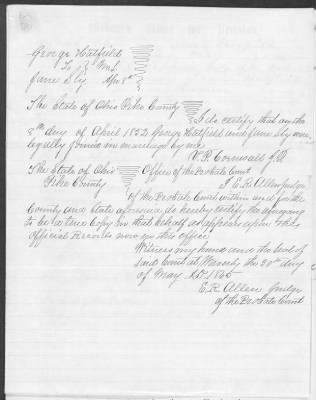 George Hatfield
To } M L
Jane Sly Apr 8th
The State of Ohio Pike County
I do certify that on the
8th day of April 1852 George Hatfield and Jane Sly were
legally joined in marriage by me
W. R. Cornwall J.P.
The State of Ohio Office of the Probate Court
Pike County I E. R. Allen Judge
of the Probate Court within and for the
County and State aforesaid do hereby certify the foregoing
to be a true Copy from that as appears upon the
Official Records now in this office
Witness my hand and the Seal of
said Court at Waverly the 30th day
of May AD 1865
E. R. Allen Judge
of the Probate Court